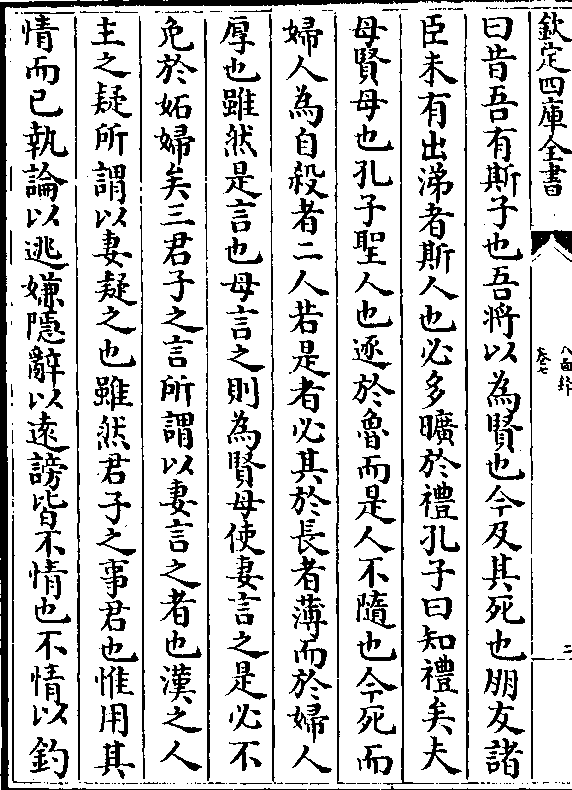 欽定四庫全書
八面鋒
卷七
三
曰昔吾有斯子也吾將以為賢也今及其死也朋友諸
臣未有出涕者斯人也必多曠於禮孔子曰知禮矣夫
母賢母也孔子聖人也逐於魯而是人不隨也今死而
婦人為自殺者二人若是者必其於長者薄而於婦人
厚也雖然是言也母言之則為賢母使妻言之是必不
免於妬婦矣三君子之言所謂以妻言之者也漢之人
主之疑所謂以妻疑之也雖然君子之事君也惟用其
情而已執論以逃嫌隱辭以遠謗皆不情也不情以釣